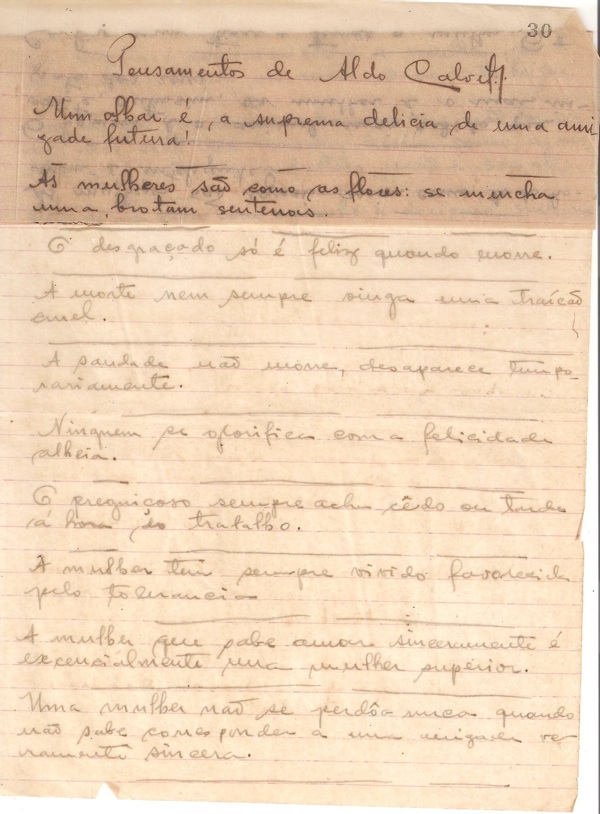 30
Pensamentos de Aldo Calvet
Um olhar é, a suprema delicia, de uma ami
zade futura!
As mulheres são como as flores: se murcha
uma, brotam sentenas.
O desgraçado só é feliz quando morre.
A morte nem sempre vinga uma traição
cruel.
A saudade não morre, desaparece tempo-
rariamente.
Ninguem se glorifica com a felicidade
alheia.
O preguiçoso sempre acha cêdo ou tarde
á hora do trabalho.
A mulher tem sempre vivido favorecida
pela tolerancia
A mulher que sabe amar sinceramente é
excencialmente uma mulher superior.
Uma mulher não se perdôa nunca quando
não sabe corresponder a uma amizade ve
ramente sincera.